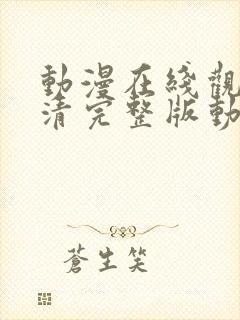 動漫在綫觀
清完整版動
蒼生笑